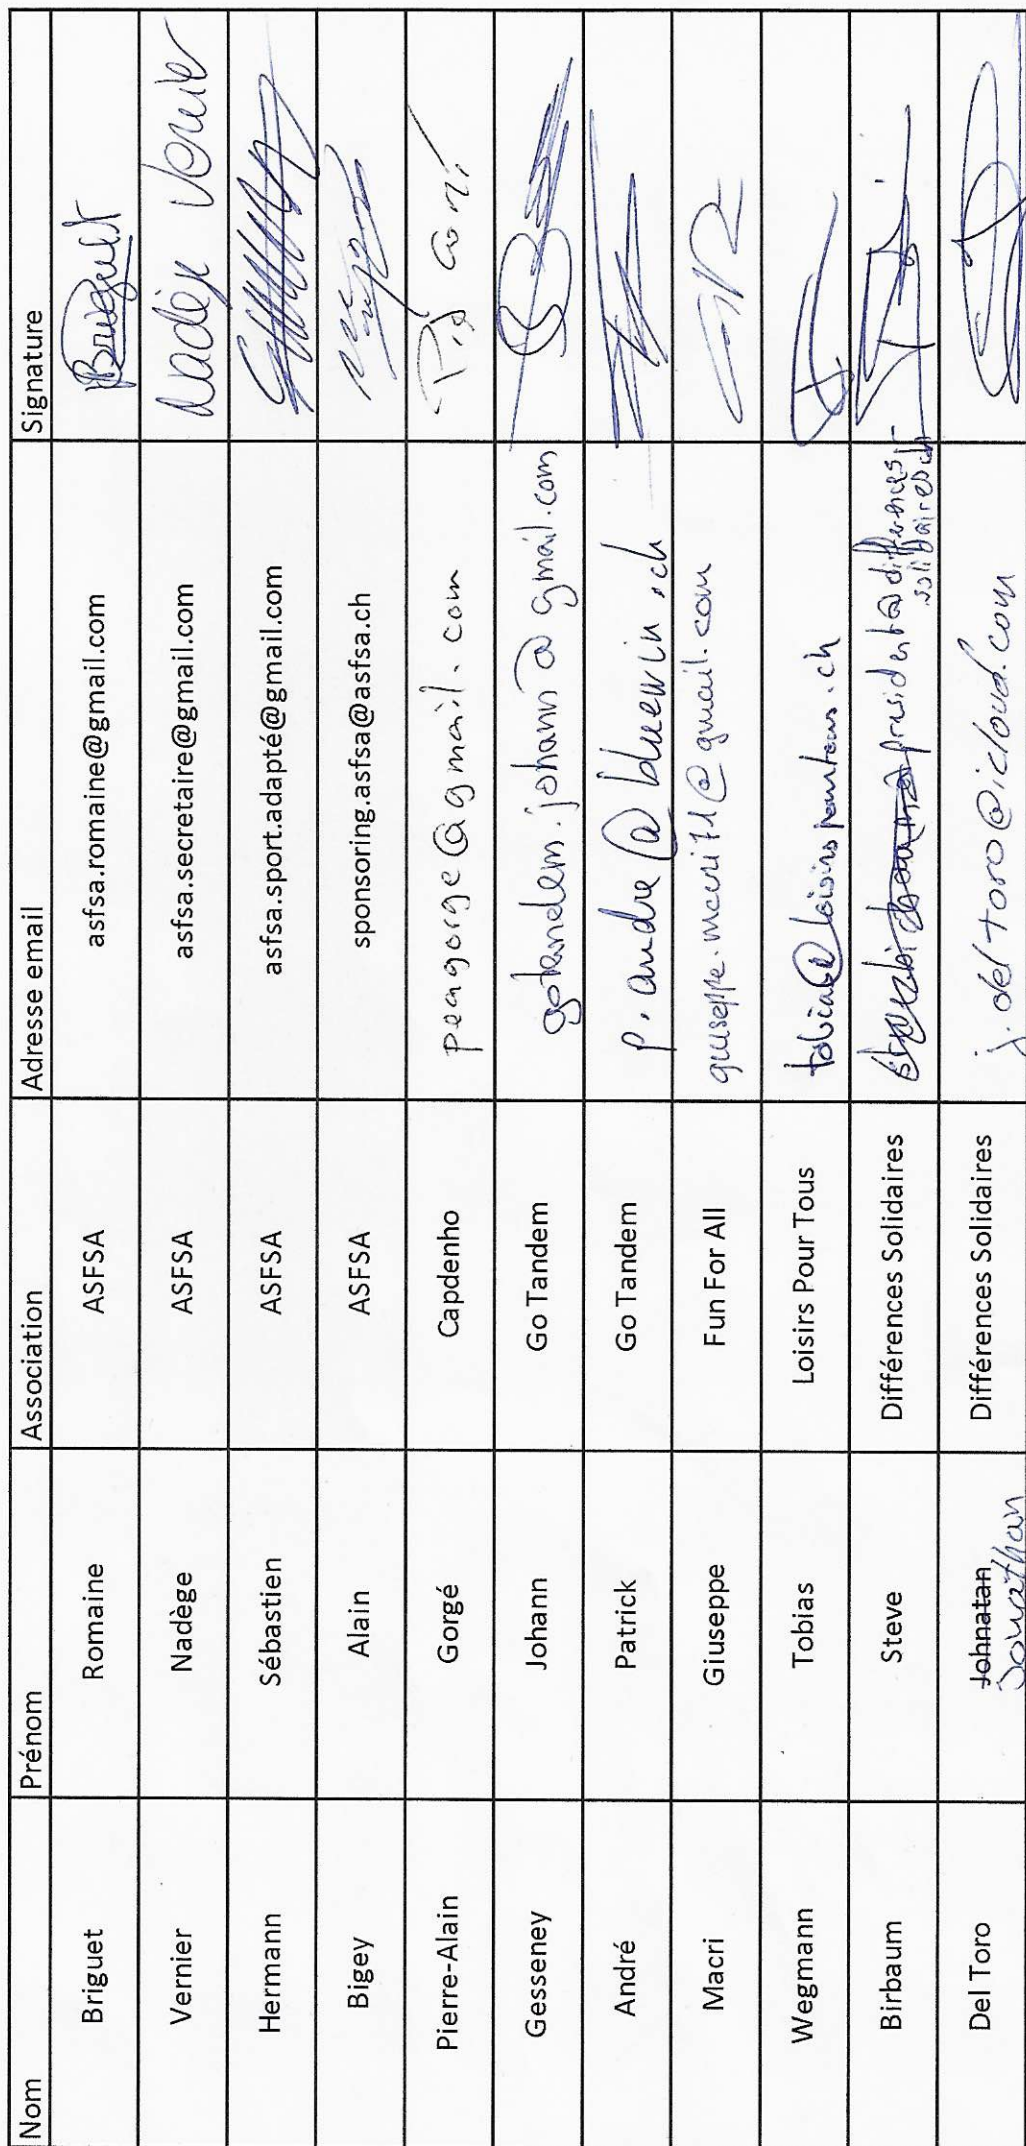 Nom Prénom Association Adresse email Signature
Briguet Romaine ASFSA asfsa.romaine@gmail.com Briguet
Vernier Nadège ASFSA asfsa.secretaire@gmail.com Nadège Vernier
Hermann Sébastien ASFSA asfsa.sport.adapté@gmail.com
Bigey Alain ASFSA sponsoring.asfsa@asfsa.ch
Pierre-Alain Gorgé Capdenho peagorge@gmail.com
Gesseney Johann Go Tandem gotandem.johann@gmail.com
André Patrick Go Tandem p.andre@bluewin.ch
Macri Giuseppe Fun For All giuseppe.macri71@gmail.com
Wegmann Tobias Loisirs Pour Tous tobias@loisirspourtous.ch
Birbaum Steve Différences Solidaires president@differences-
solidaires.ch
Del Toro Johnatan Différences Solidaires j.deltoro@icloud.com
Jonathan